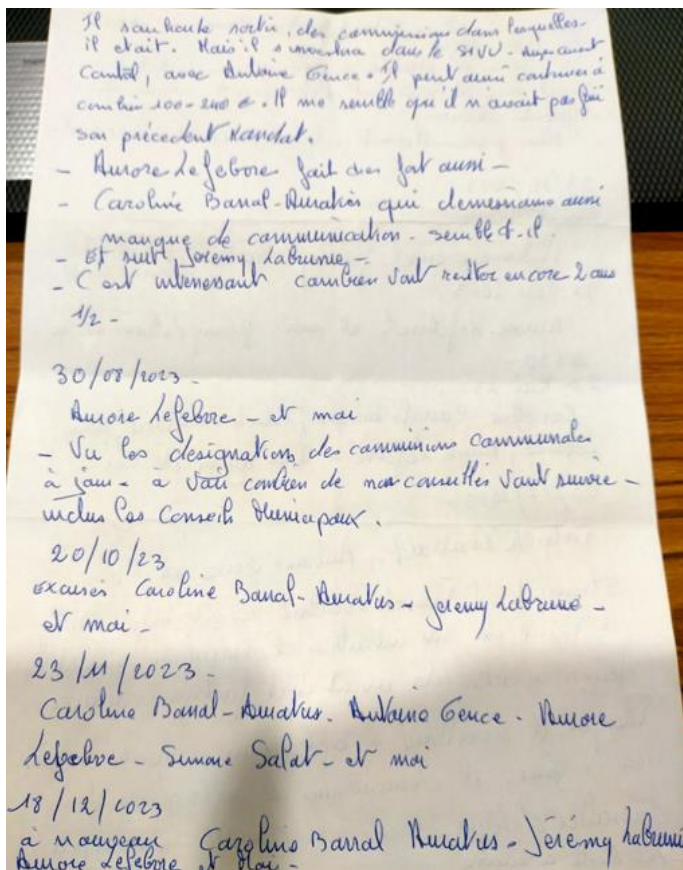 Il souhaite sortir, des commissions dans lesquelles
il etait. Mais il s'investira dans le SIVU -
Cantal, avec Antoine Gence. Il peut aussi continuer à
100-240 €. Il me semble qu'il n'avait pas fini
son précedent Mandat.
- Aurore Lefebvre fait aussi -
- Caroline Barral-Amatus qui demissionne aussi
manque de communication - semble t-il.
- Et suit, Jeremy Labrunie -
- C'est interessant combien vont rester encore 2 ans
1/2 -
30/08/2023 -
Aurore Lefebvre - et moi
- Vu les désignations des commissions communales
à jour - à voir combien de nos conseillés vont suivre -
inclus les Conseils Municipaux.
20/10/23
excusés Caroline Barral-Amatus - Jeremy Labrunie -
et moi -
23/11/2023 -
Caroline Barral-Amatus. Antoine Gence - Aurore
Lefebvre - Simone Salat - et moi
18/12/2023
à nouveau Caroline Barral Amatus - Jérémy Labrunie
Aurore Lefebvre et Moi -